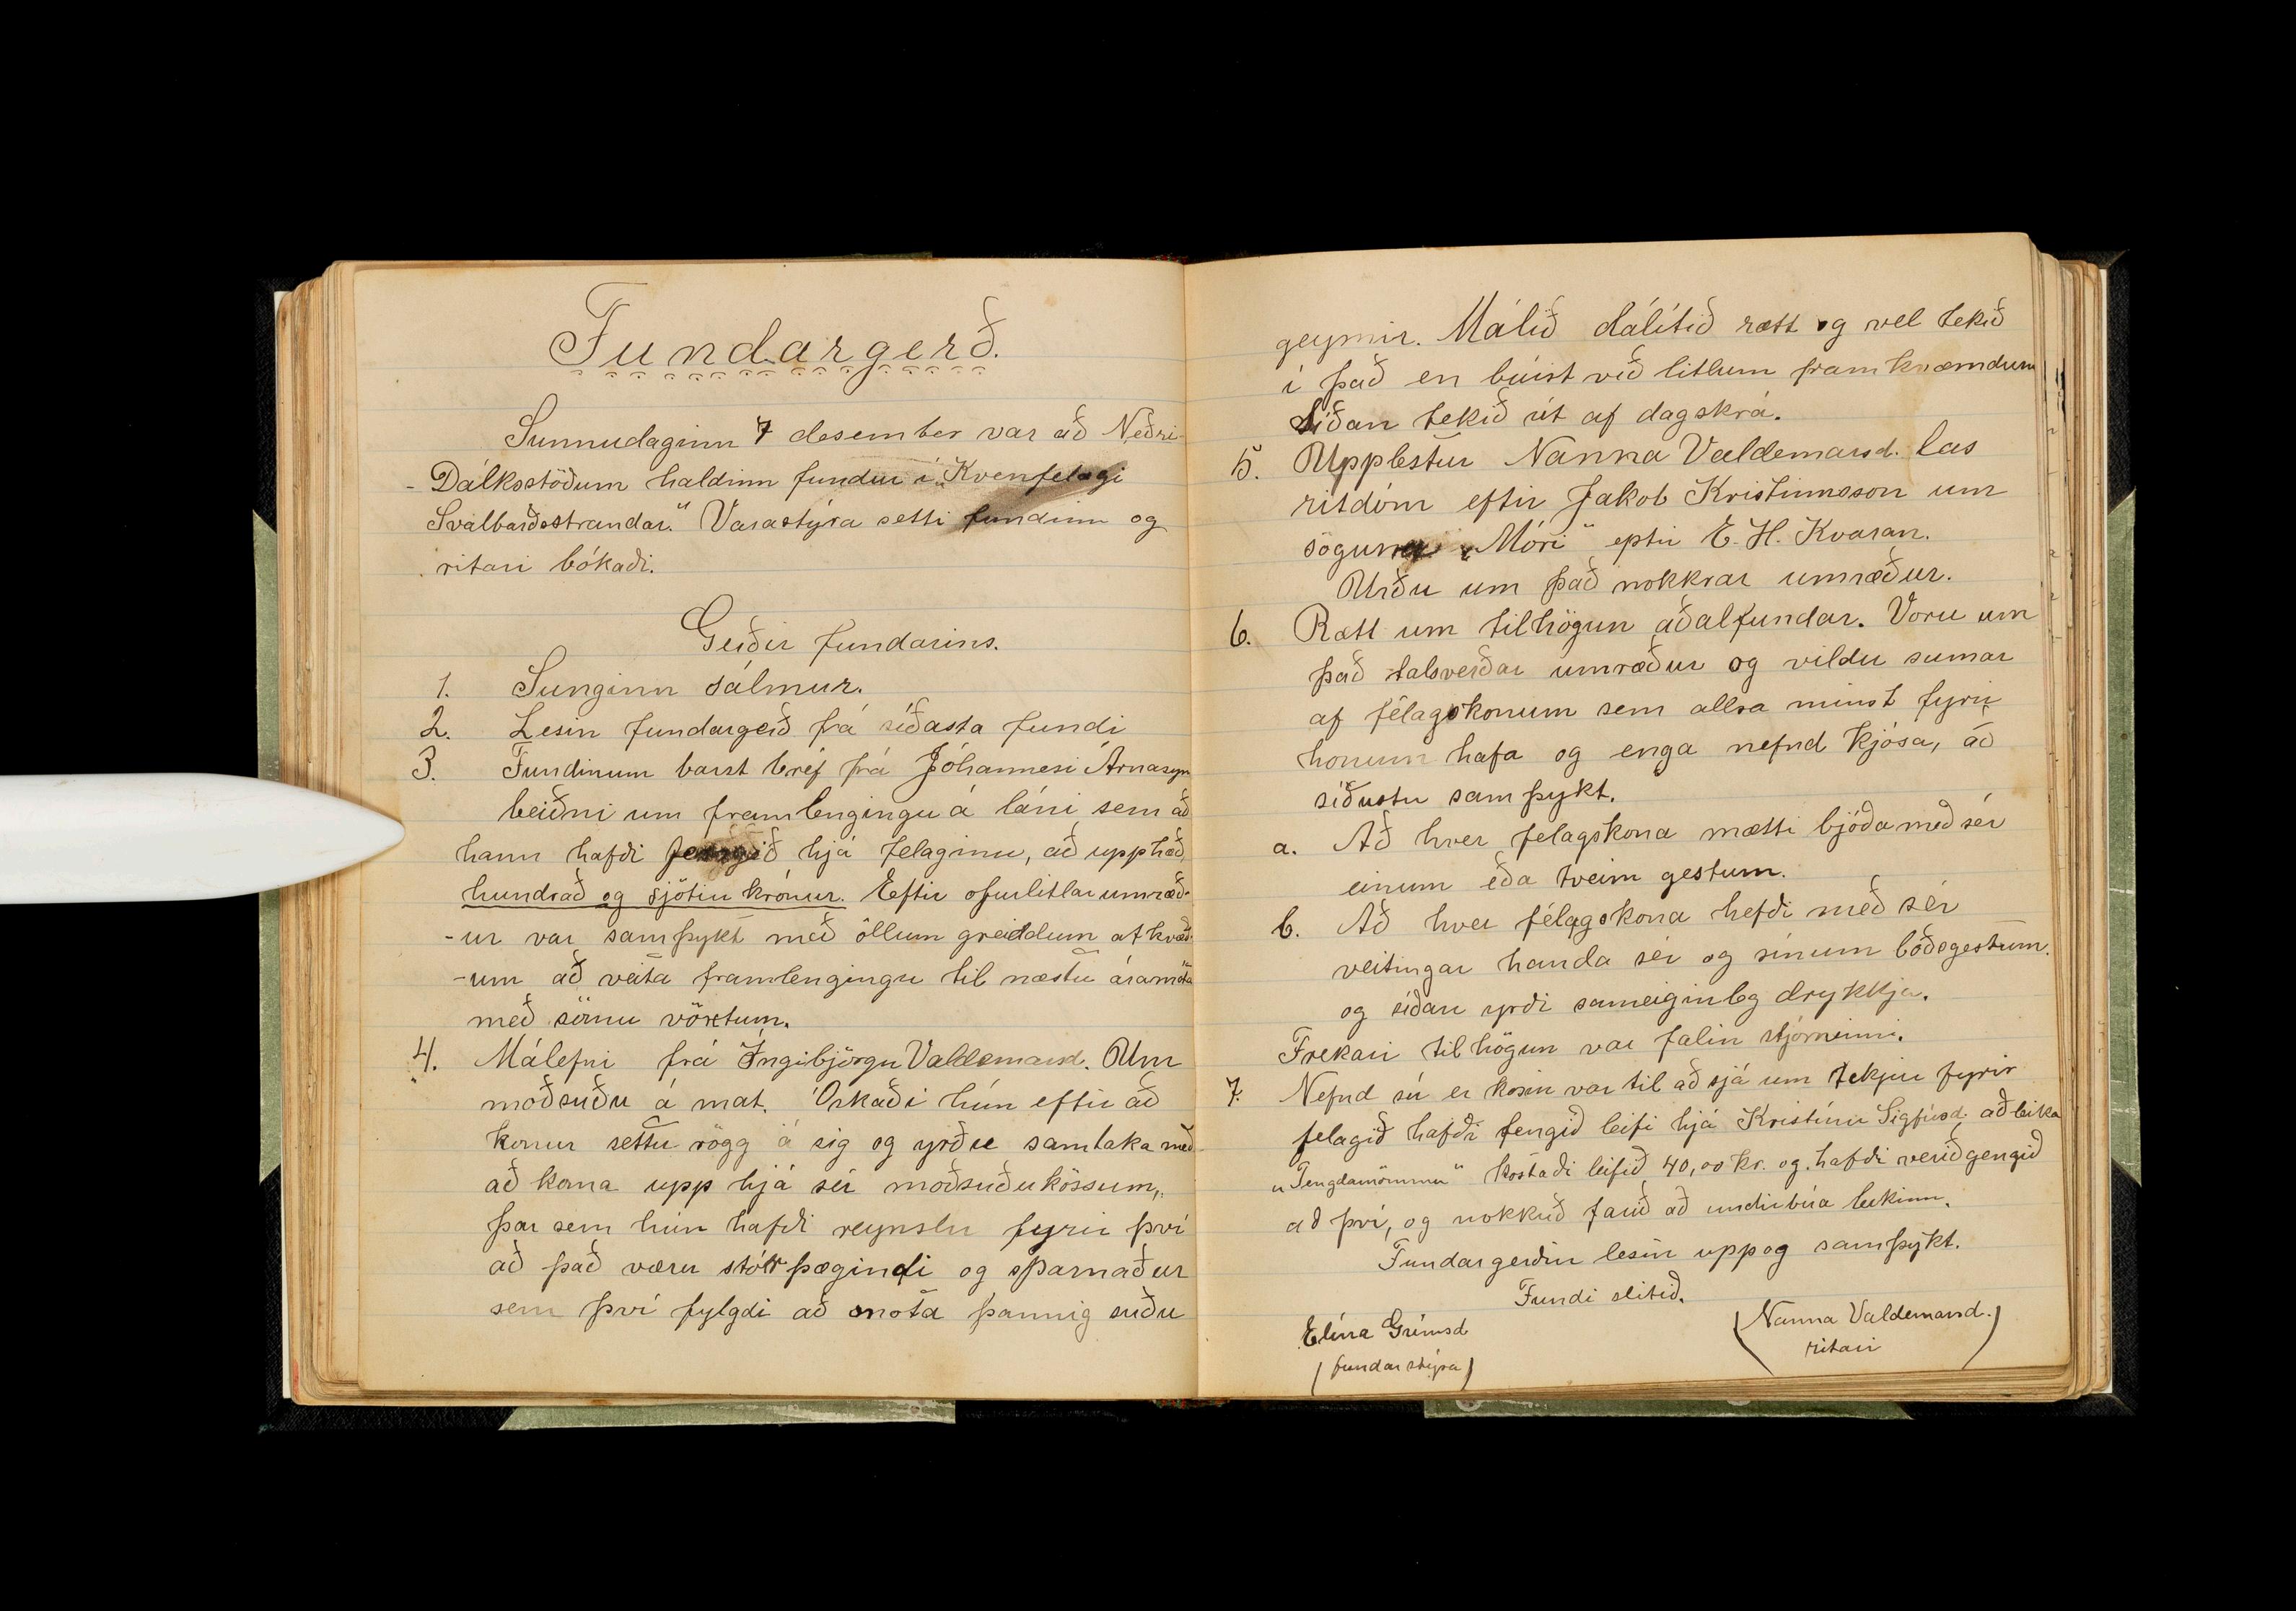 Fundargerð.
Sunnudaginn 7 desember var að Neðri-
- Dálksstöðum haldinn fundur í „Kvenfelagi
Svalbarðsstrandar." Varastýra setti fundinn og
ritari bókaði.
Gerðir fundarins.
1. Sunginn sálmur.
2. Lesin fundargerð frá síðasta fundi
3. Fundinum barst bréf frá Jóhannesi Árnasyni
beiðni um framlengingu á láni sem að
hann hafði fengið hjá felaginu, að upphæð,
hundrað og sjötiu krónur. Eftir ofurlitlar umræð-
-ur var samþykt með öllum greiddum atkvæð-
-um að veita framlengingu til næstu áramóta
með sömu vöxtum.
4. Málefni frá Ingibjörgu Valdemarsd. Um
moðsuðu á mat. Óskaði hún eftir að
konur settu rögg á sig og yrðu samtaka með
að koma upp hjá sér moðsuðukössum,
þar sem hún hafði reynslu fyrir því
að það væru stór þægindi og sparnaður
sem því fylgdi að nota þannig suðu
geymir. Málið dálítið rætt og vel tekið
í það en búist við litlum framkvæmdum
Síðan tekið út af dagskrá.
5. Upplestur Nanna Valdemarsd. las
ritdóm eftir Jakob Kristinnsson um
söguna „Móri" eptir E. H. Kvaran.
Urðu um það nokkrar umræður.
6. Rætt um tilhögun aðalfundar. Voru um
það talsverðar umræður og vildu sumar
af félagskonum sem allra minst fyrir
honum hafa og enga nefnd kjósa, að
síðustu samþykt.
a. Að hver felagskona mætti bjóða með sér
einum eða tveim gestum.
b. Að hver félagskona hefði með sér
veitingar handa sér og sínum boðsgestum.
og síðan yrði sameiginleg drykkja.
Frekari tilhögun var falin stjórninni.
7. Nefnd sú er kosin var til að sjá um tekjur fyrir
felagið hafði fengið leifi hjá Kristínu Sigfúsd. að leika
„Tengdamömmu" kostaði leifið 40,00 kr. og hafði verið gengið
að því, og nokkuð farið að undirbúa leikinn.
Fundargerðin lesin upp og samþykt.
Fundi slitið.
Elína Grímsd
(fundarstýra)
(Nanna Valdemarsd.
ritari)